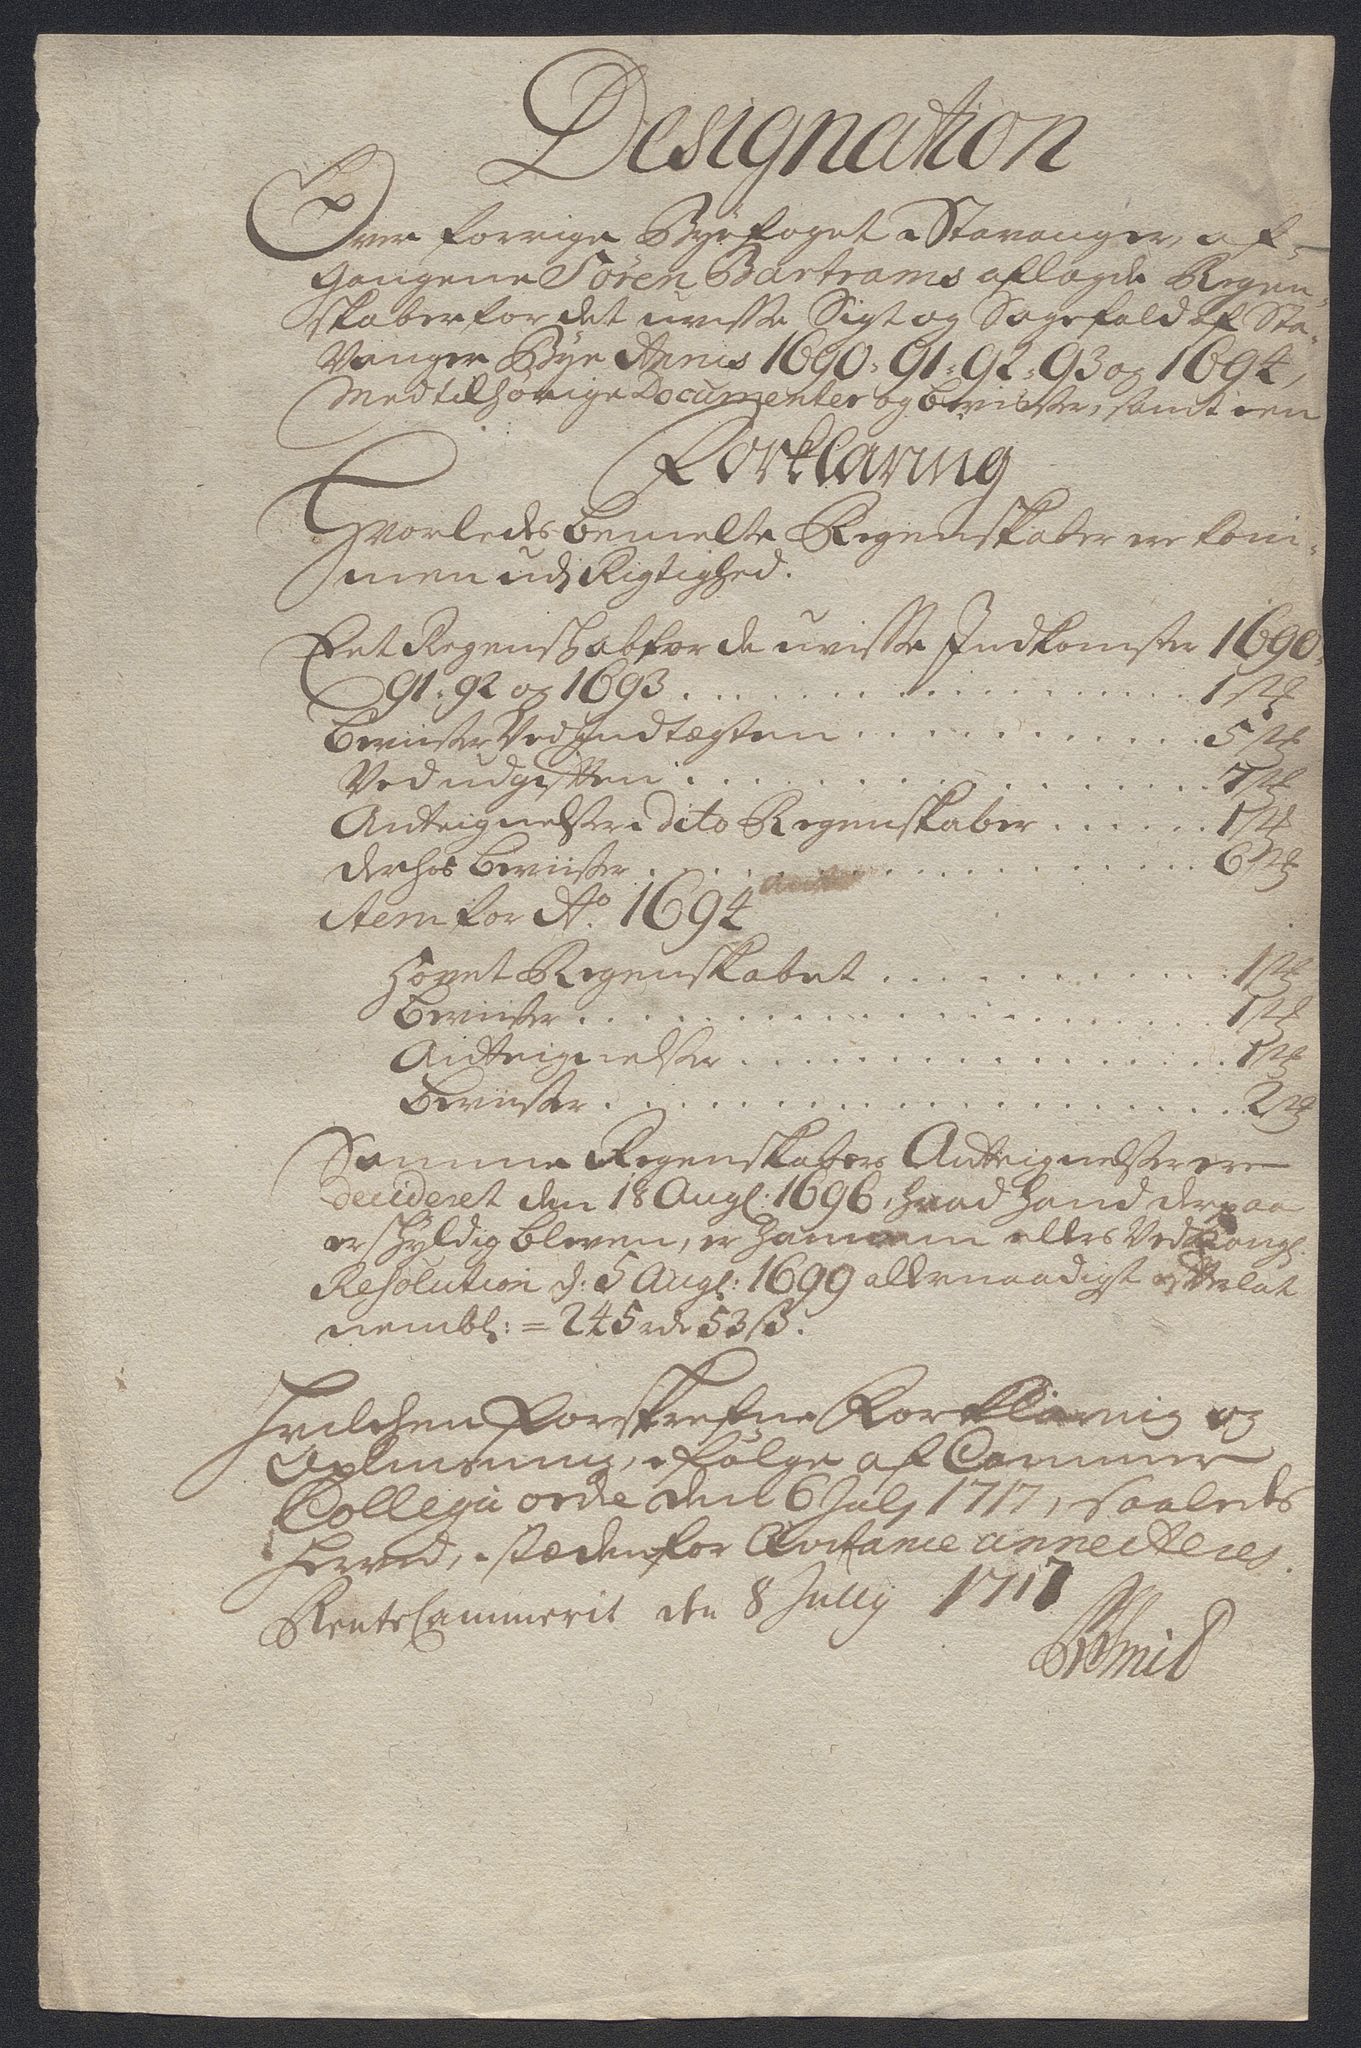 Designation
Over forrige Byefoget i Stavanger, af-
gangene Søren Bartrams aflagde Regen-
skaber for det uvisse Sigt og Sagefald af Sta-
vanger Bye Annis 1690, 91, 92, 93 og 1694,
med tilhørige Documenter og beviiser, samt een
Forklaring
Hvorledes bemelte Regenskaber ere kom-
men udj Rigtighed.
Eet Regenschab for de uvisse Indkomster 1690,
91, 92 og 1693 . . . . . . . . . . 1 stk
Beviiser Ved Indtægten . . . . . . . . 5 stk
Ved udgifften . . . . . . . . . . 7 stk
Anteignelser i dito Regenskaber . . . . . . 1 stk
derhos beviiser . . . . . . . . . . 6 stk
item for Ao. 1694
Hovet Regenskabet . . . . . . . . . . 1 stk
Beviiser . . . . . . . . . . 1 stk
Anteignelser . . . . . . . . . . 1 stk
Beviiser . . . . . . . . . . 2 stk
Samme Regenskabers Anteignelser ere
decideret den 18 Augl. 1696, hvad hand derpaa
er schyldig bleven, er hannem ellers Ved Kongl.
Resolution d: 5 Augl: 1699 allernaadigst efterlat
nembl: = 245 rdr 53 ß.
Hvilchen forskrefne Forklaring og
i følge af Cammer
Collegii ordre den 6 Julj 1717, saaledes
herved, i stæden for Qvitance annecteres.
RenteCammerit den 8 July 1717
Schmid